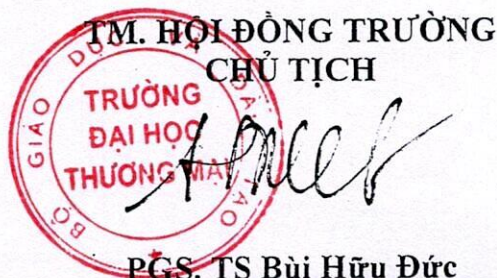 TM. HỘI ĐỒNG TRƯỜNG
CHỦ TỊCH
BỘ GIÁO DỤC VÀ ĐÀO TẠO
TRƯỜNG
ĐẠI HỌC
THƯƠNG MẠI
PGS. TS Bùi Hữu Đức